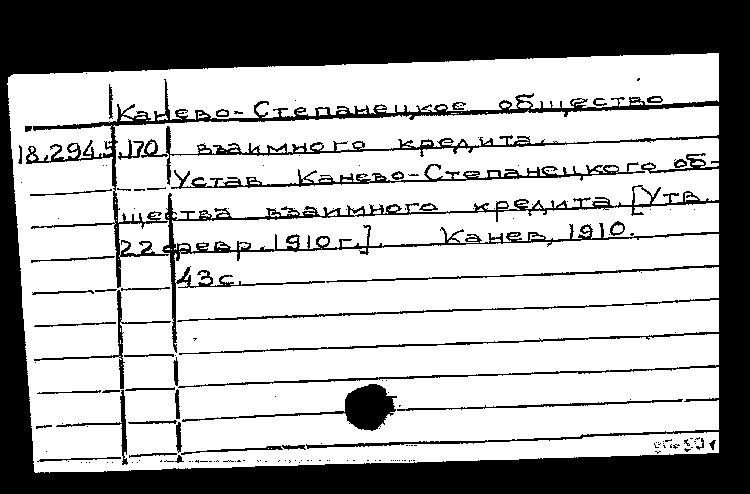 Канево-Степанецкое общество
18.294.5.170 взаимного кредита.
Устав Канево-Степанецкого об-
щества взаимного кредита. [Утв.
22 февр. 1910 г.]. Канев, 1910.
43 с.